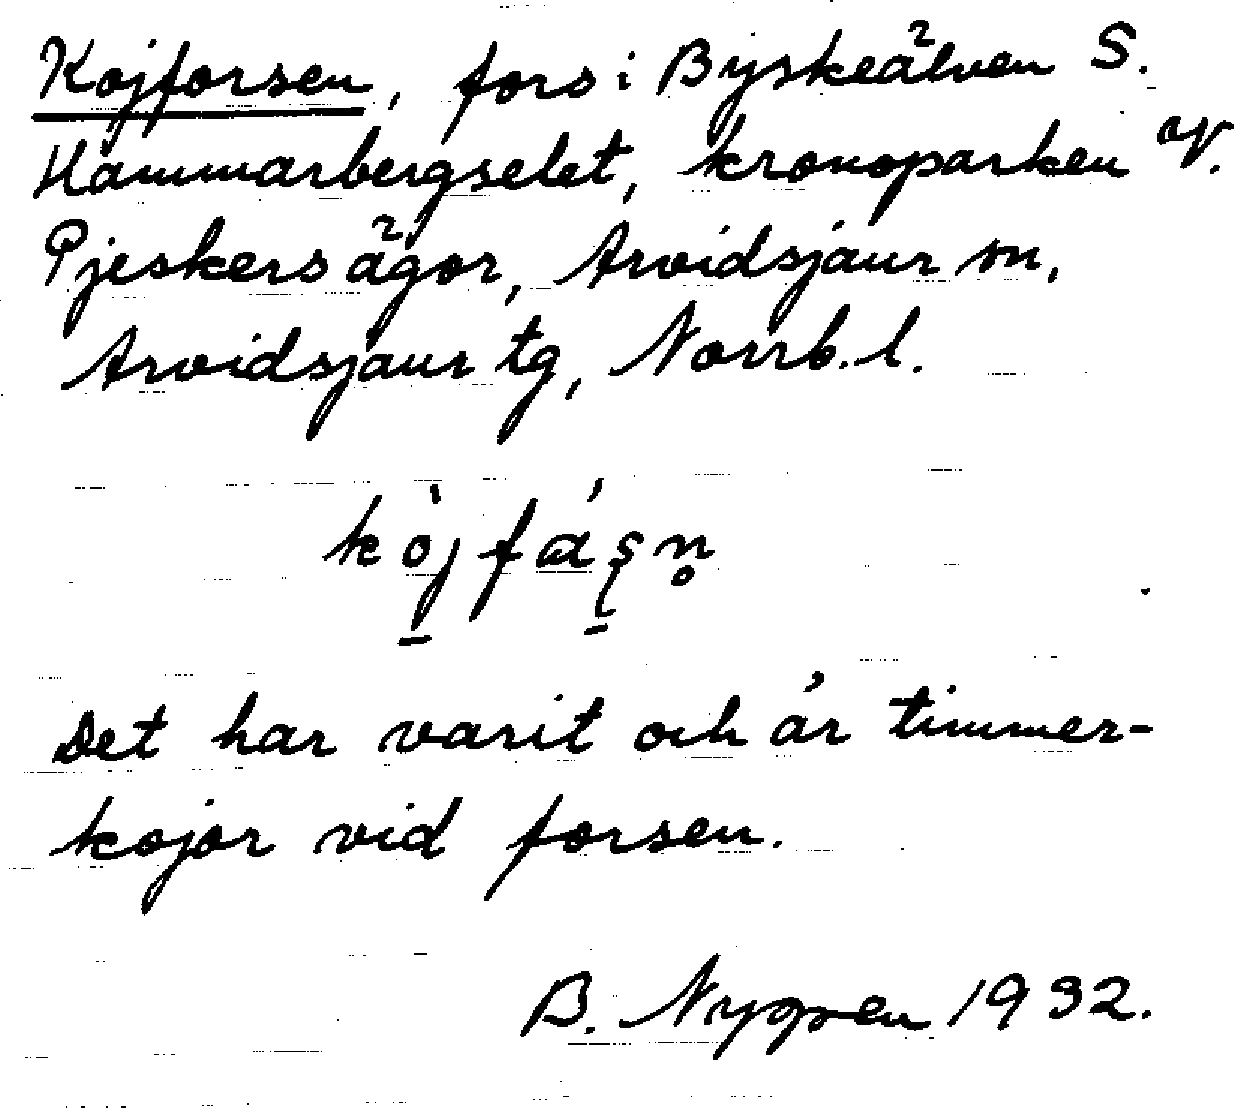 Kojforsen, fors i Byskeälven S.
Hammarbergselet, kronoparken av.
Pjeskers ägor, Arvidsjaur sn,
Arvidsjaur tg, Norrb. l.
kòjfáʂn̥
Det har varit och är timmer-
kojor vid forsen.
B. Nygren 1932.